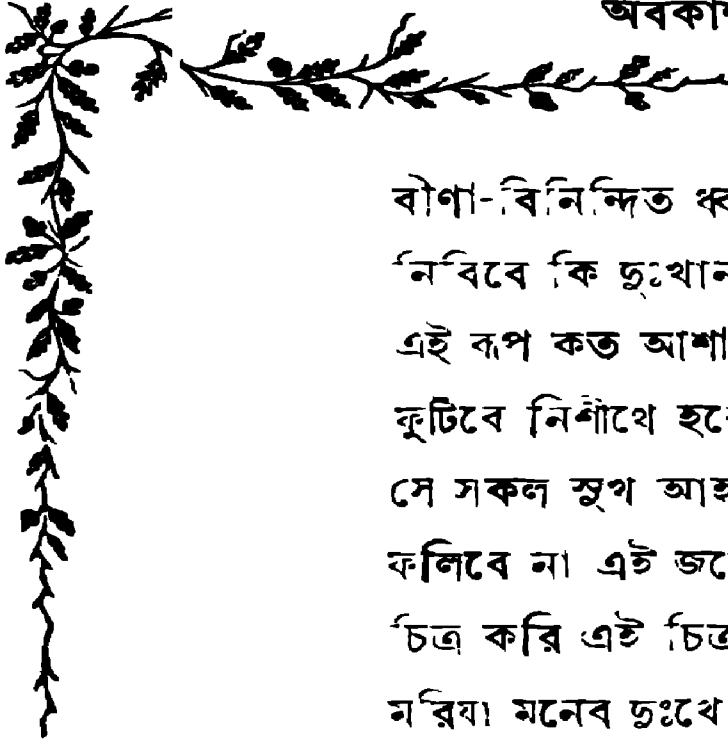 অবকা
বীণা-বিনিন্দিত
নিবিবে কি দুঃখান
এই রূপ কত আশা
ফুটিবে নিশীথে হবে
সে সকল সুখ আহ
ফলিবে না এই জ
চিত্র করি এই চিত্র
মরিয়া মনের দুঃখে